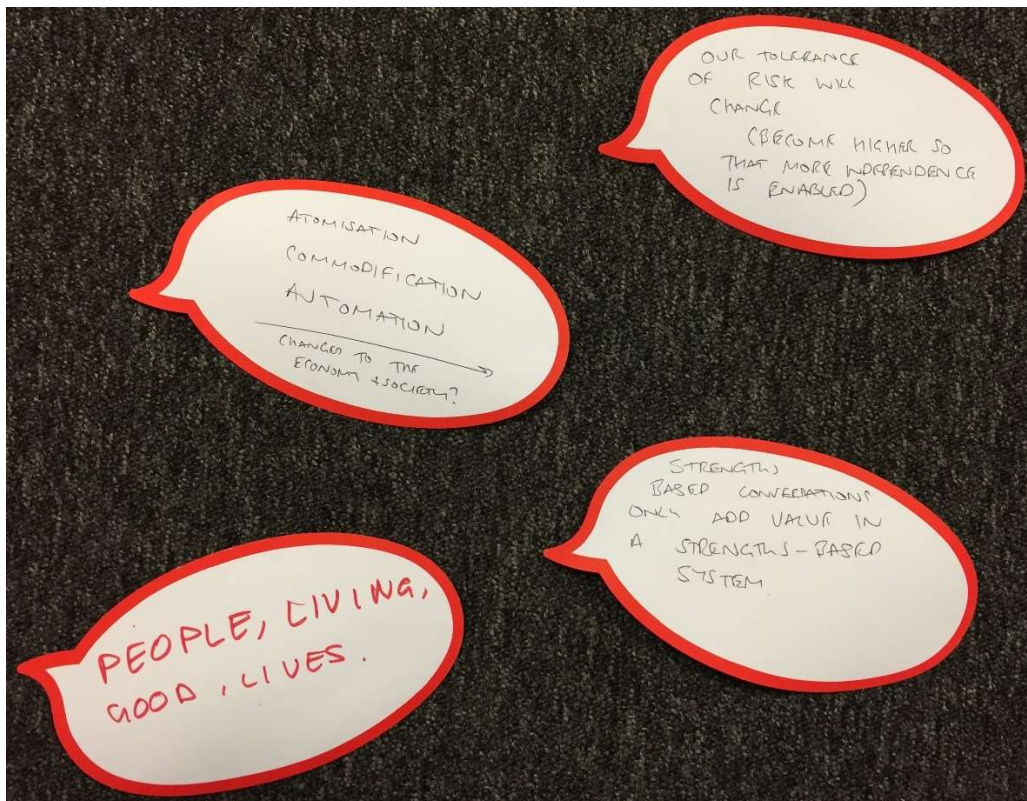 OUR TOLERANCE
OF RISK WILL
CHANGE
(BECOME HIGHER SO
THAT MORE INDEPENDENCE
IS ENABLED)
ATOMISATION
COMMODIFICATION
AUTOMATION
CHANGES TO THE
ECONOMY + SOCIETY?
STRENGTHS
BASED CONVERSATIONS
ONLY ADD VALUE IN
A STRENGTHS-BASED
SYSTEM.
PEOPLE, LIVING,
GOOD, LIVES.